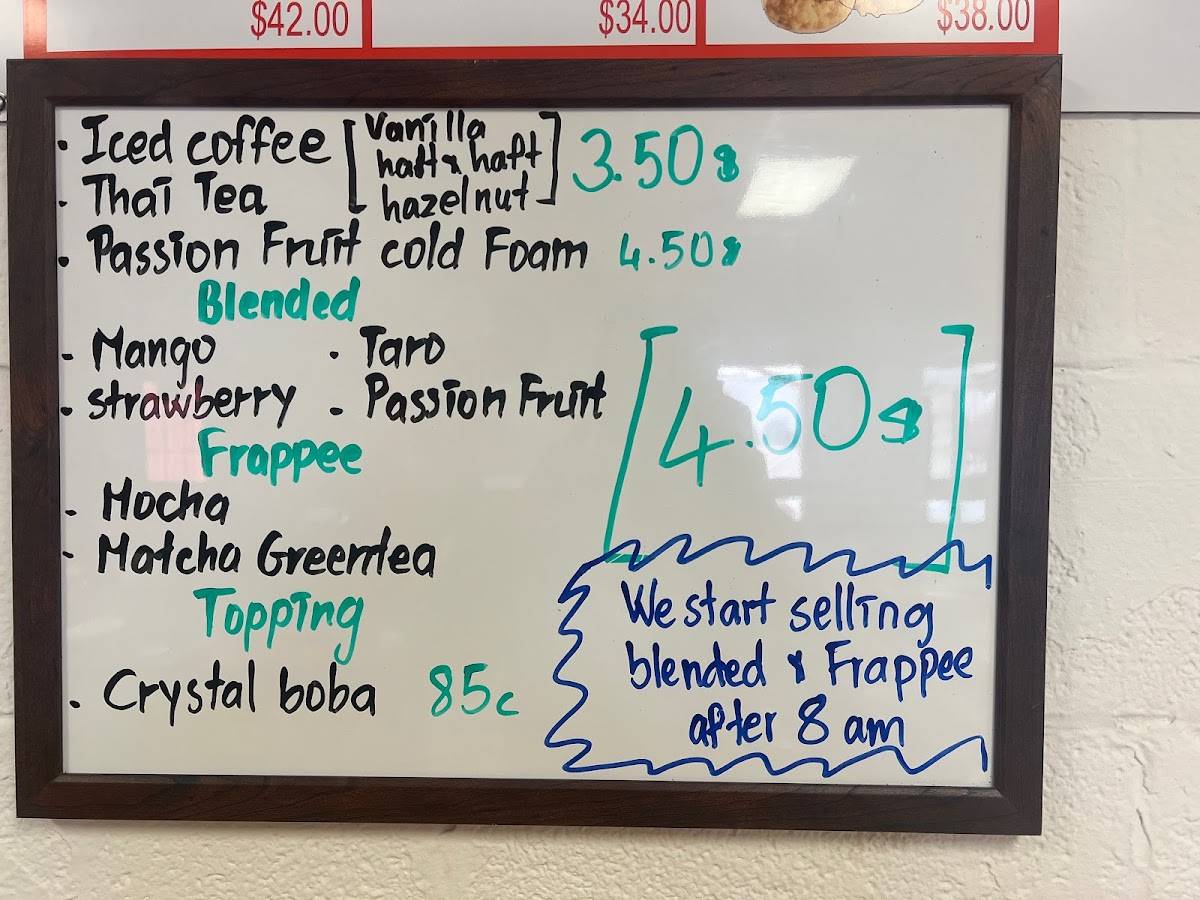 $42.00 $34.00 $38.00
· Iced coffee [Vanilla
haft & haft
hazelnut] 3.50$
· Thai Tea
· Passion Fruit cold Foam 4.50$
Blended
· Mango · Taro
· strawberry · Passion Fruit
[4.50$]
Frappee
· Mocha
· Matcha Greentea
Topping
· Crystal boba 85c
We start selling
blended & Frappee
after 8 am